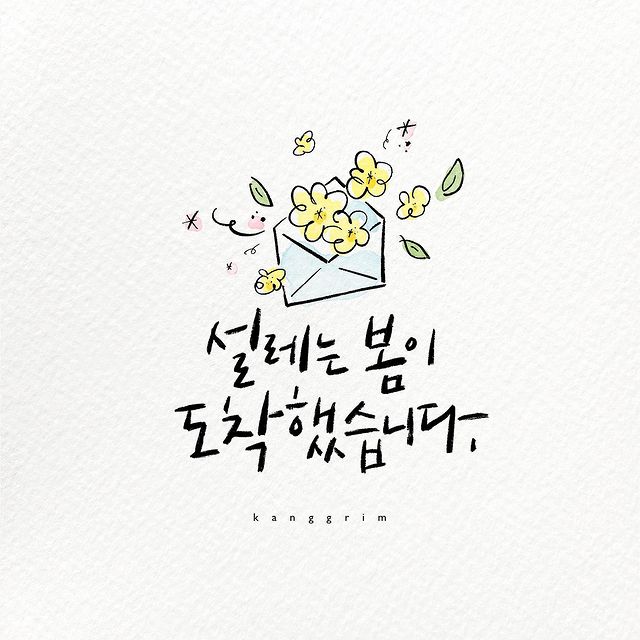 설레는 봄이
도착했습니다.
kanggrim